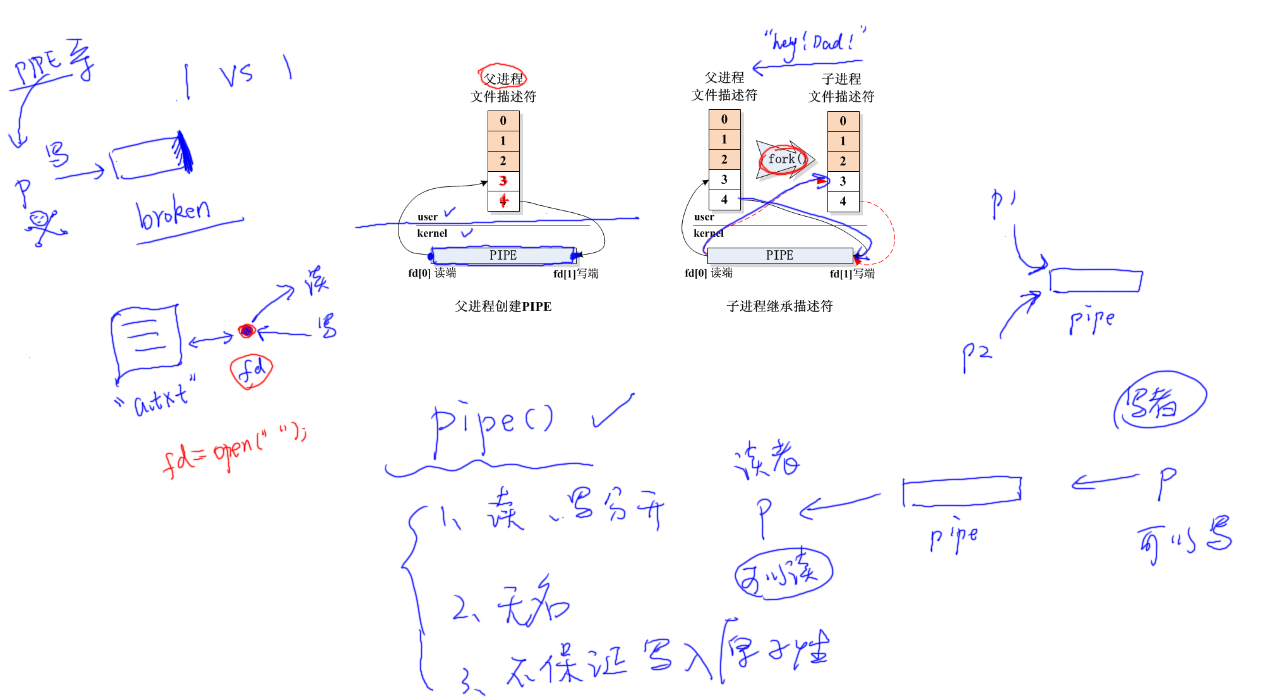 PIPE 弃
1 vs 1
P
写
broken
"a.txt"
fd
读
写
fd=open(" ");
父进程
文件描述符
0
1
2
3
4
user
kernel
PIPE
fd[0] 读端
fd[1]写端
父进程创建PIPE
"hey! Dad!"
父进程
文件描述符
0
1
2
3
4
fork()
子进程
文件描述符
0
1
2
3
4
user
kernel
PIPE
fd[0] 读端
fd[1]写端
子进程继承描述符
P1
P2
pipe
pipe()
1、读、写分开
2、无名
3、不保证写入原子性
读者
P
可以读
pipe
写者
P
可以写